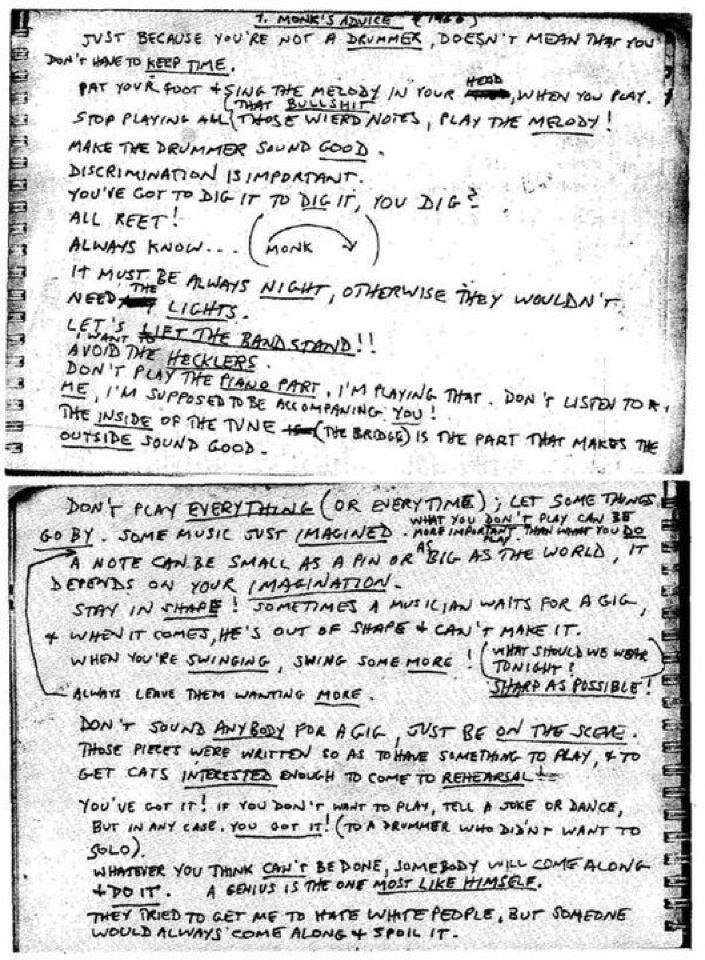 T. MONK'S ADVICE (1960)
JUST BECAUSE YOU'RE NOT A DRUMMER, DOESN'T MEAN THAT YOU
DON'T HAVE TO KEEP TIME.
PAT YOUR FOOT & SING THE MELODY IN YOUR HEAD, WHEN YOU PLAY.
STOP PLAYING ALL (THAT BULLSHIT) THOSE WIERD NOTES, PLAY THE MELODY!
MAKE THE DRUMMER SOUND GOOD.
DISCRIMINATION IS IMPORTANT.
YOU'VE GOT TO DIG IT TO DIG IT, YOU DIG?
ALL REET!
ALWAYS KNOW... (MONK)
IT MUST BE ALWAYS NIGHT, OTHERWISE THEY WOULDN'T
NEED THE LIGHTS.
LET'S LIFT THE BANDSTAND!!
I WANT TO
AVOID THE HECKLERS.
DON'T PLAY THE PIANO PART, I'M PLAYING THAT. DON'T LISTEN TO
ME, I'M SUPPOSED TO BE ACCOMPANING YOU!
THE INSIDE OF THE TUNE (THE BRIDGE) IS THE PART THAT MAKES THE
OUTSIDE SOUND GOOD.
DON'T PLAY EVERYTHING (OR EVERYTIME); LET SOME THINGS
GO BY. SOME MUSIC JUST IMAGINED. WHAT YOU DON'T PLAY CAN BE
MORE IMPORTANT THAN WHAT YOU DO PLAY
A NOTE CAN BE SMALL AS A PIN OR AS BIG AS THE WORLD, IT
DEPENDS ON YOUR IMAGINATION.
STAY IN SHAPE! SOMETIMES A MUSICIAN WAITS FOR A GIG,
& WHEN IT COMES, HE'S OUT OF SHAPE & CAN'T MAKE IT.
WHEN YOU'RE SWINGING, SWING SOME MORE!
(WHAT SHOULD WE WEAR
TONIGHT?
SHARP AS POSSIBLE!)
ALWAYS LEAVE THEM WANTING MORE.
DON'T SOUND ANYBODY FOR A GIG, JUST BE ON THE SCENE.
THOSE PIECES WERE WRITTEN SO AS TO HAVE SOMETHING TO PLAY, & TO
GET CATS INTERESTED ENOUGH TO COME TO REHEARSAL!
YOU'VE GOT IT! IF YOU DON'T WANT TO PLAY, TELL A JOKE OR DANCE,
BUT IN ANY CASE, YOU GOT IT! (TO A DRUMMER WHO DIDN'T WANT TO
SOLO).
WHATEVER YOU THINK CAN'T BE DONE, SOMEBODY WILL COME ALONG
& DO IT. A GENIUS IS THE ONE MOST LIKE HIMSELF.
THEY TRIED TO GET ME TO HATE WHITE PEOPLE, BUT SOMEONE
WOULD ALWAYS COME ALONG & SPOIL IT.